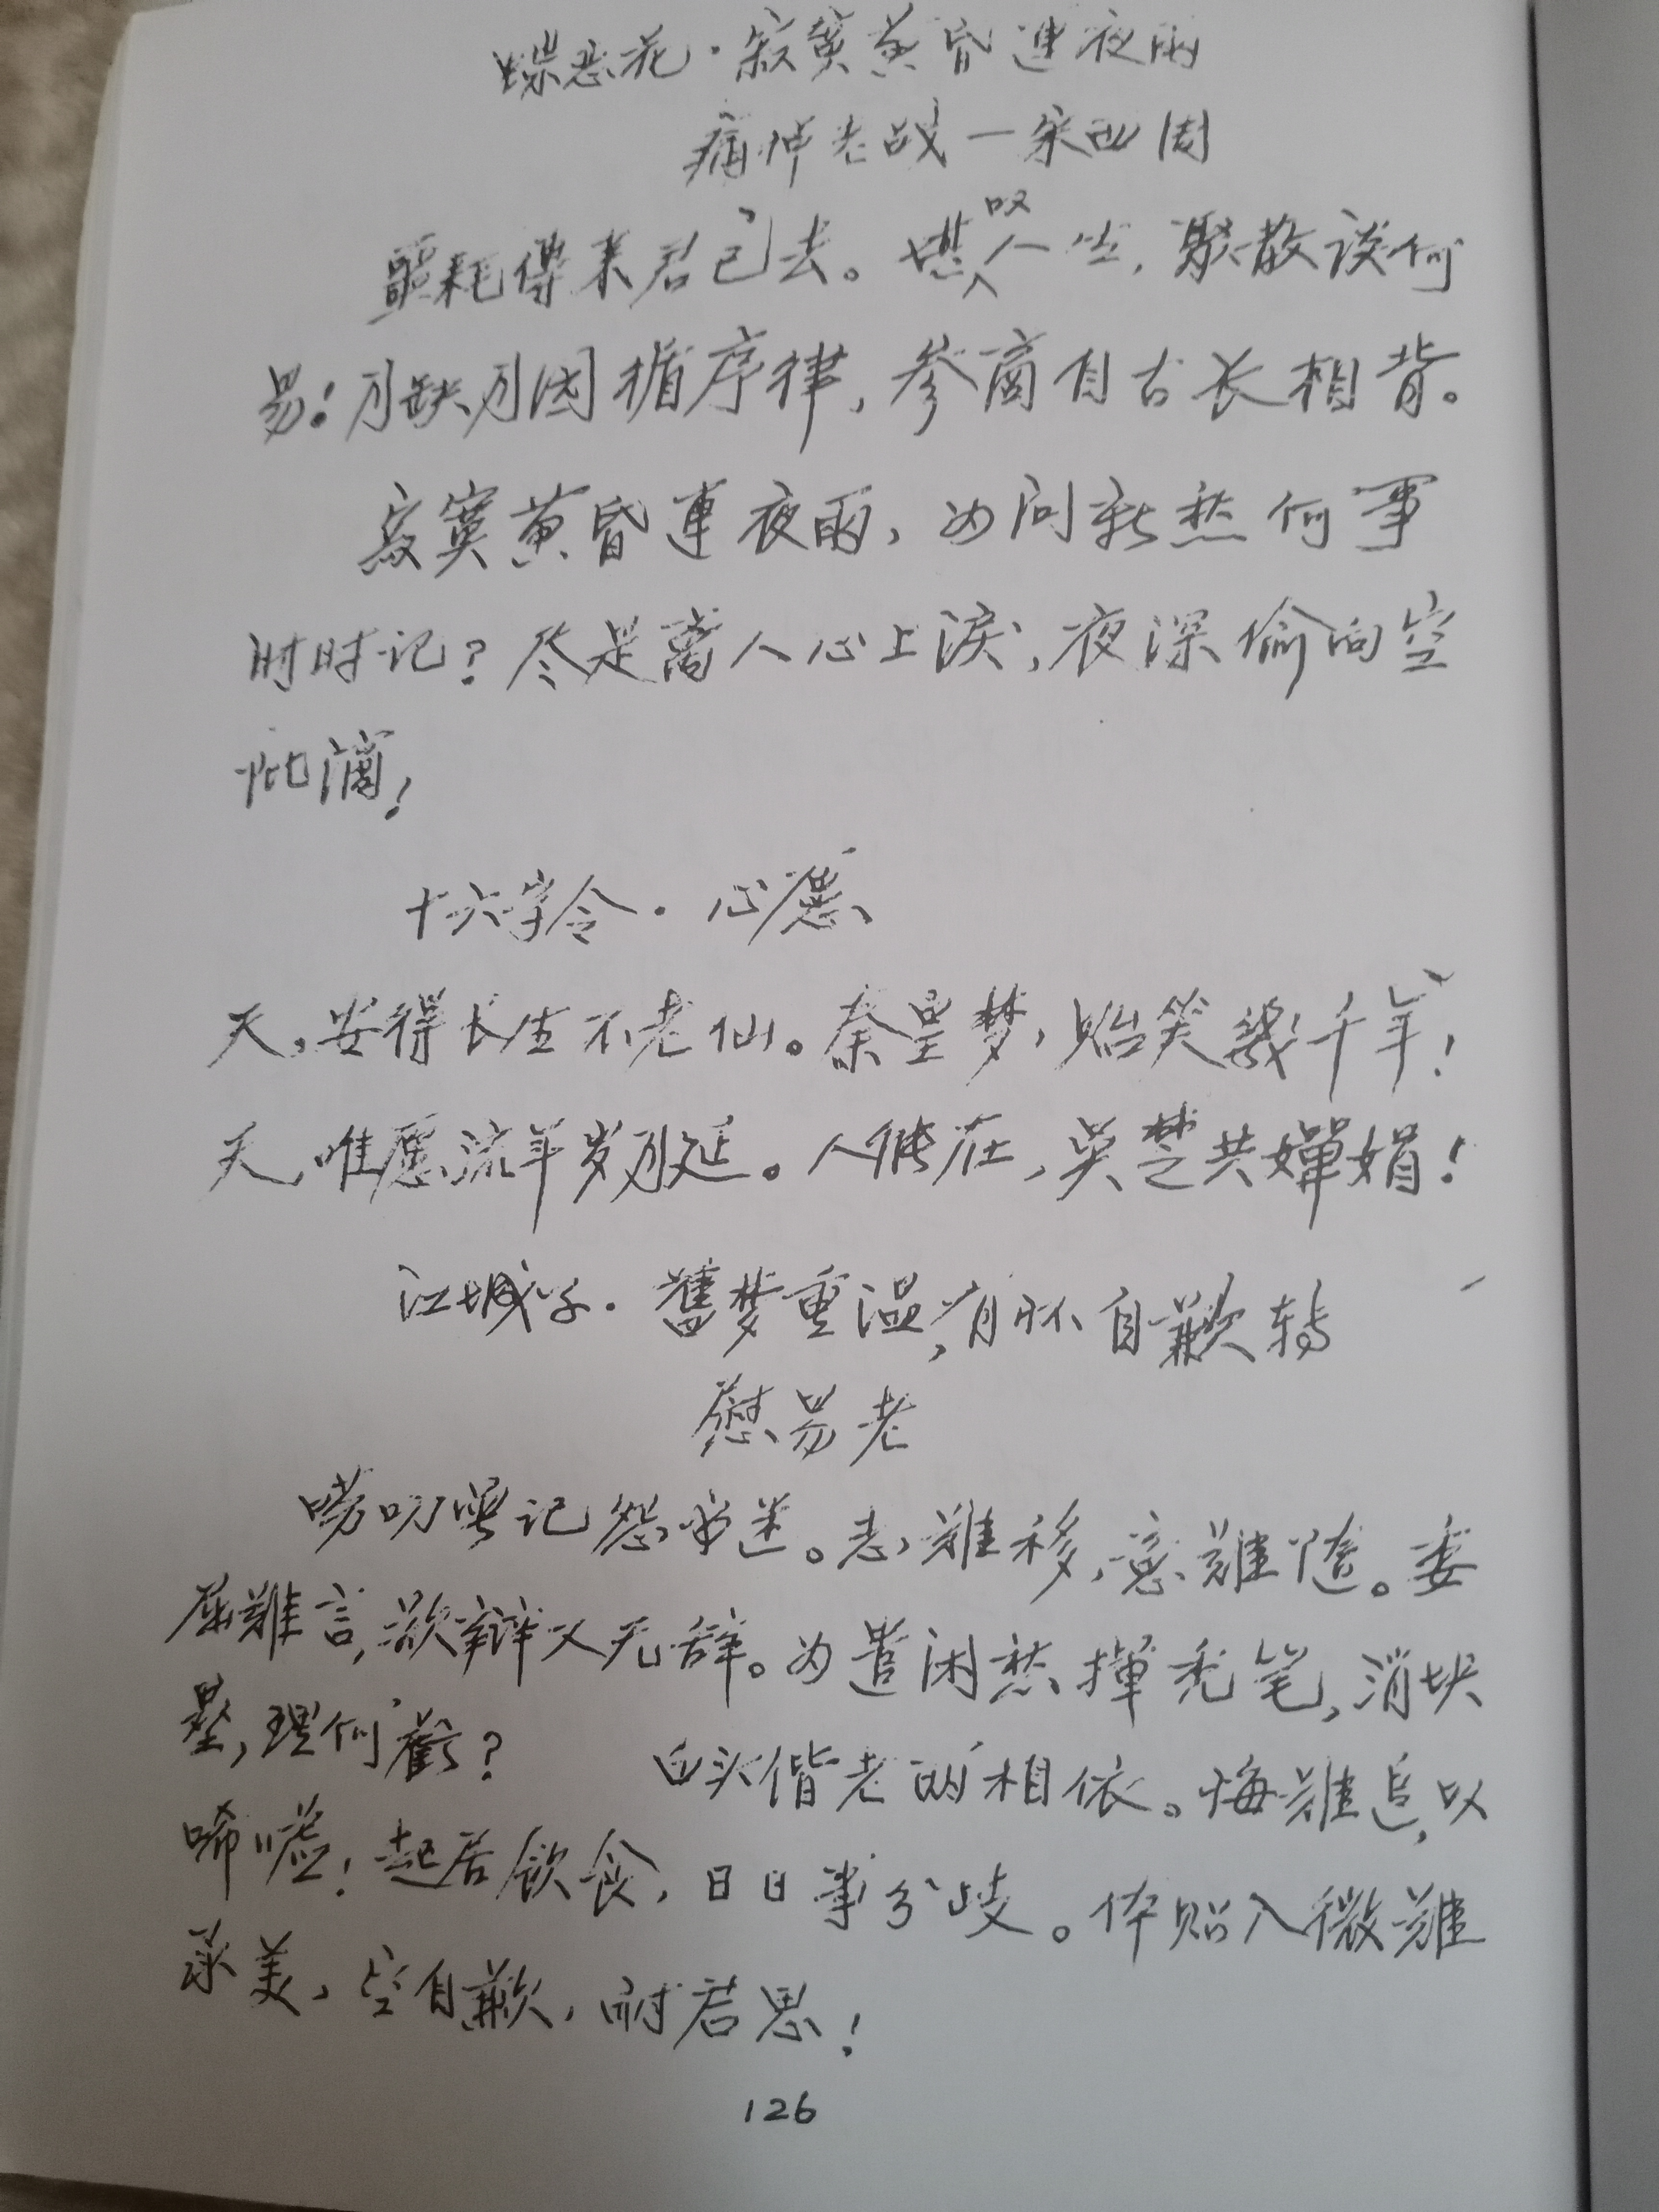 蝶恋花·寂寞黄昏连夜雨
痛悼老战一宋西周
噩耗傳来君已去。堪叹人生，聚散谈何
易！月缺月圆循序律，参商自古长相背。
寂寞黄昏連夜雨，如问新愁何事
时时记？尽是离人心上淚，夜深偷向空
阶滴！
十六字令·心愿
天，安得长生不老仙。秦皇梦，贻笑幾千年！
天，唯愿流年岁月延。人健在，吴楚共嬋娟！
江城子·舊梦重温，有怀自歉转
慰易老
唠叨琴记怨当迷。志难移，意難隨。委
屈難言，欲辩又无辞。为遣闲愁揮秃笔，消块
垒，理何虧？ 白头偕老两相依。悔難追，以
唏嘘！起居飲食，日日事分岐。体贴入微難
承美，空自歉，耐君思！
126